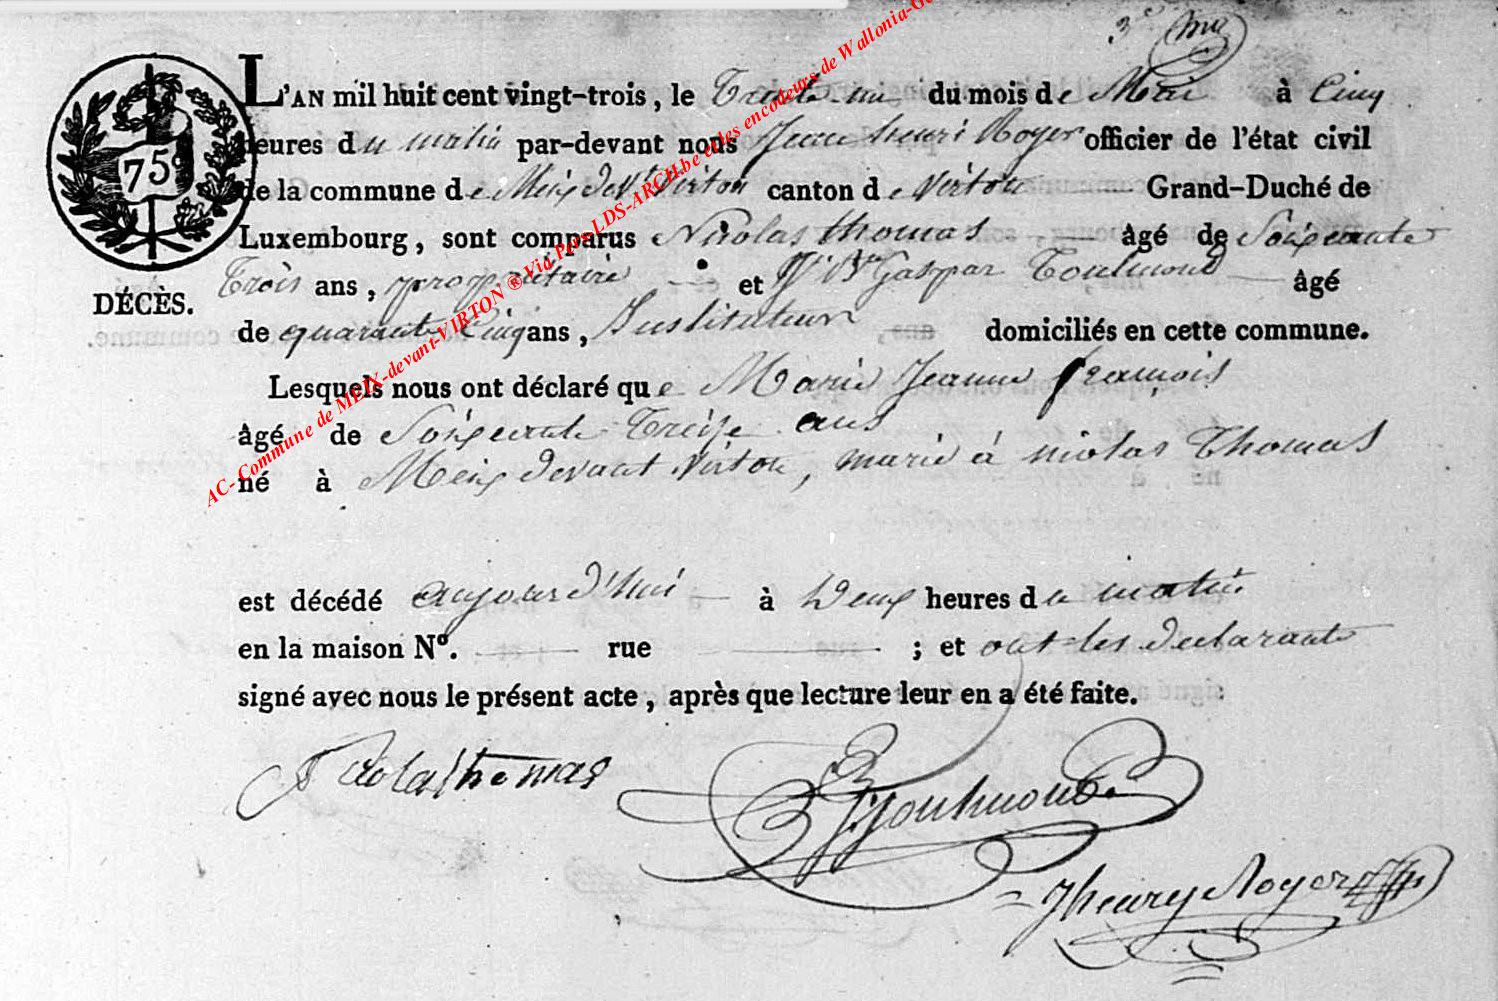 3e
75
L'AN mil huit cent vingt-trois, le Trente un du mois de Mai à Cinq
heures du matin par-devant nous Jean henri Royer officier de l'état civil
de la commune de Meix devt Virton canton de Virton Grand-Duché de
Luxembourg, sont comparus Nicolas thomas âgé de Soixante
Trois ans, propriétaire et Jn Bte Gaspar Toulmond âgé
DÉCÈS.
de quarante Cinq ans, Instituteur ans, domiciliés en cette commune.
Lesquels nous ont déclaré que Marie Jeanne françois
âgé de Soixante Treize ans
né à Meix devant Virton, marié à nicolas Thomas
est décédé aujourd'hui à Deux heures du matin
en la maison No. rue ; et ont les declarants
signé avec nous le présent acte, après que lecture leur en a été faite.
Nicolas thomas
Toulmond
Jhenry Royer
AC- Commune de MEIX-devant-VIRTON ® Via Pers-LDS-ARCH.be et les encodeurs de Wallonia-G